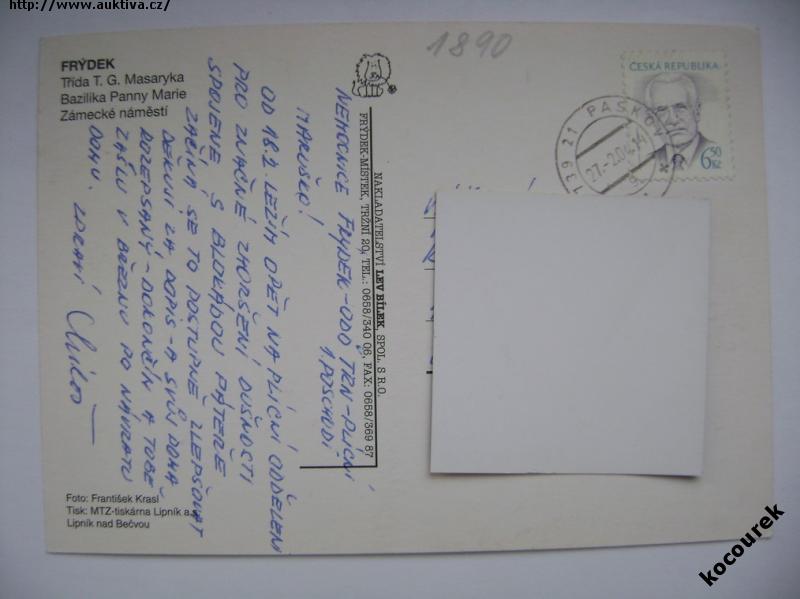 http://www.auktiva.cz/
1890
FRÝDEK
Třída T. G. Masaryka
Bazilika Panny Marie
Zámecké náměstí
ČESKÁ REPUBLIKA
6,50
Kč
739 21 PASKOV
27.-2.04.14
NAKLADATELSTVÍ LEV BÍLEK, SPOL. S R.O.
FRÝDEK-MÍSTEK, TRŽNÍ 20, TEL.: 0658/340 06, FAX: 0658/369 87
NEMOCNICE FRÝDEK-ODD TRN-PLICNÍ
1. POSCHODÍ
MARUŠKO!
OD 18.2. LEŽÍM OPĚT NA PLICNÍ ODDĚLENÍ
PRO ZNAČNÉ ZHORŠENÍ DUŠNOSTI
SPOJENÉ S BLOKÁDOU PÁTEŘE
ZAČÍNÁ SE TO POSTUPNĚ ZLEPŠOVAT
DĚKUJI ZA DOPIS-A SVŮJ DOMA
ROZEPSANÝ-DOKONČÍM A TOBĚ
ZAŠLU V BŘEZNU PO NÁVRATU
DOMŮ. ZDRAVÍ
Foto: František Krasl
Tisk: MTZ-tiskárna Lipník a.s.
Lipník nad Bečvou
kocourek